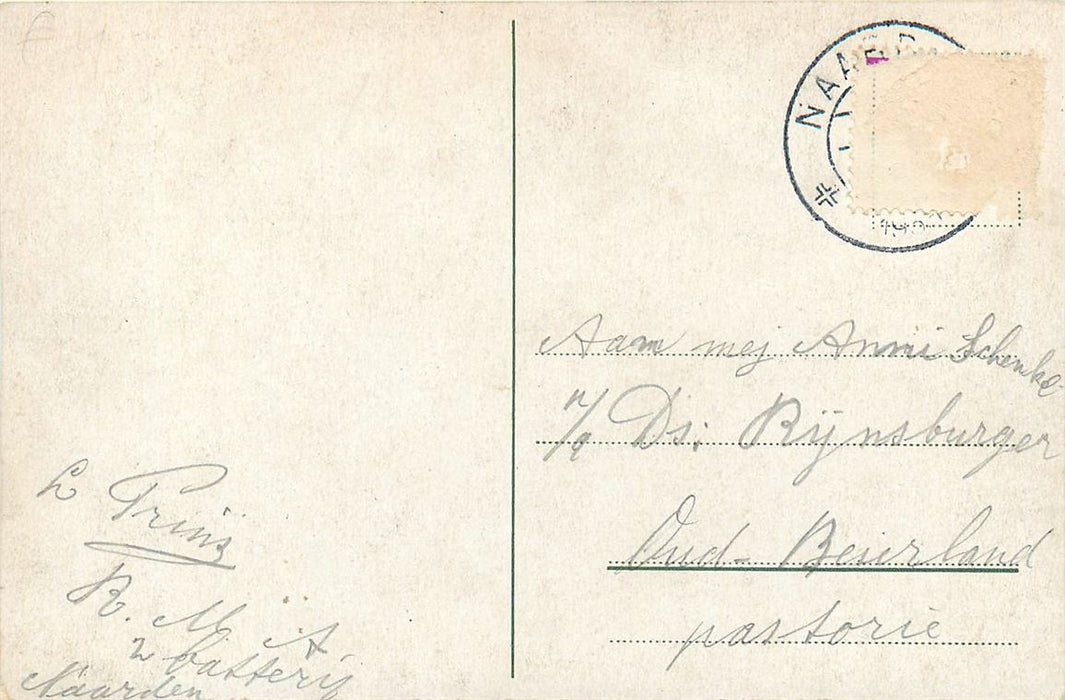 NAARD
Aam mej Anni Schenke
Ds: Rijnsburger
Oud-Beierland
pastorie
L Prins
R. M A
2 batterij
Naarden